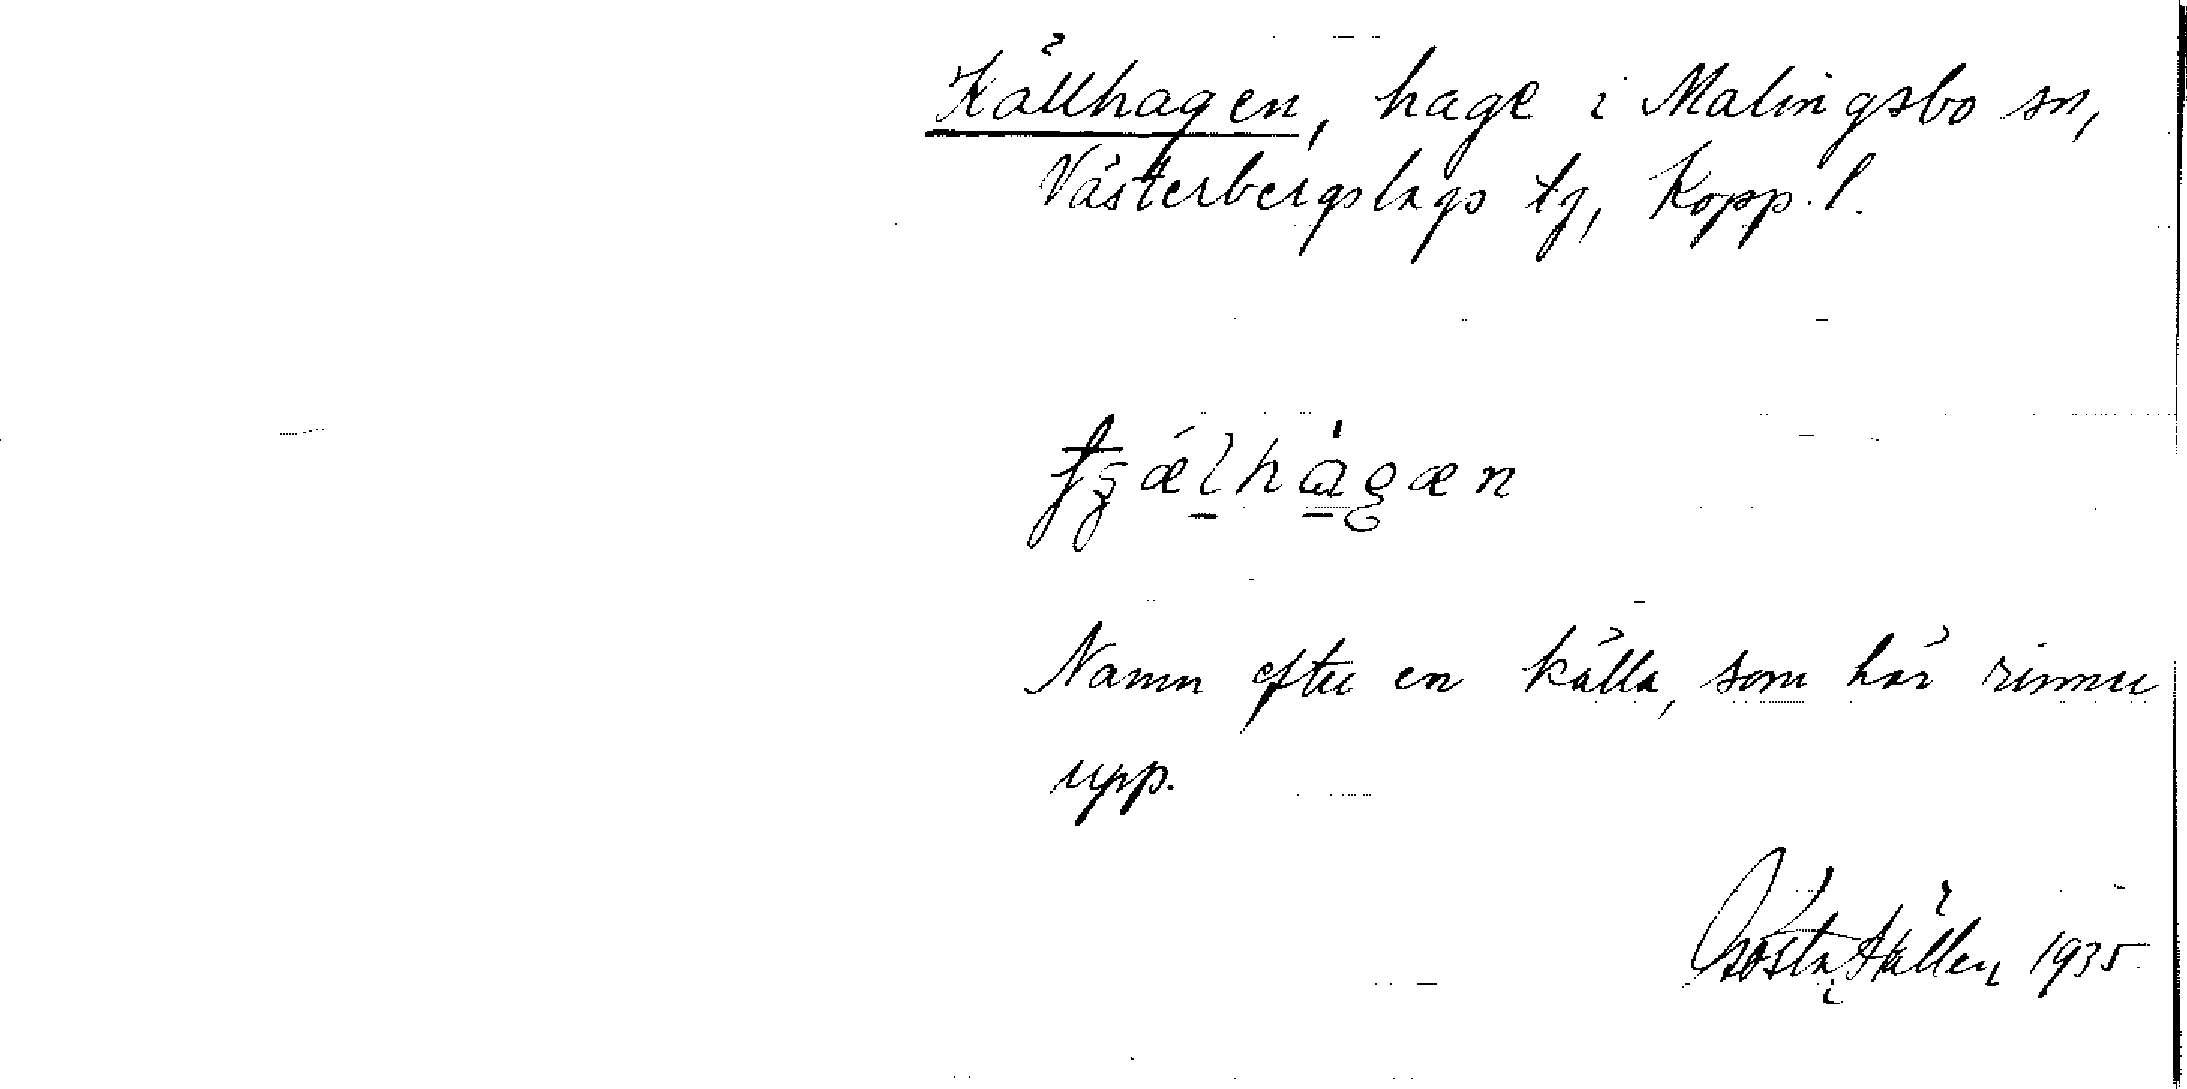 Källhagen, hage i Malingsbo sn,
Västerbergslags tg, Kopp. l.
Namn efter en källa, som här rinner
upp.
Gösta Hällen 1935